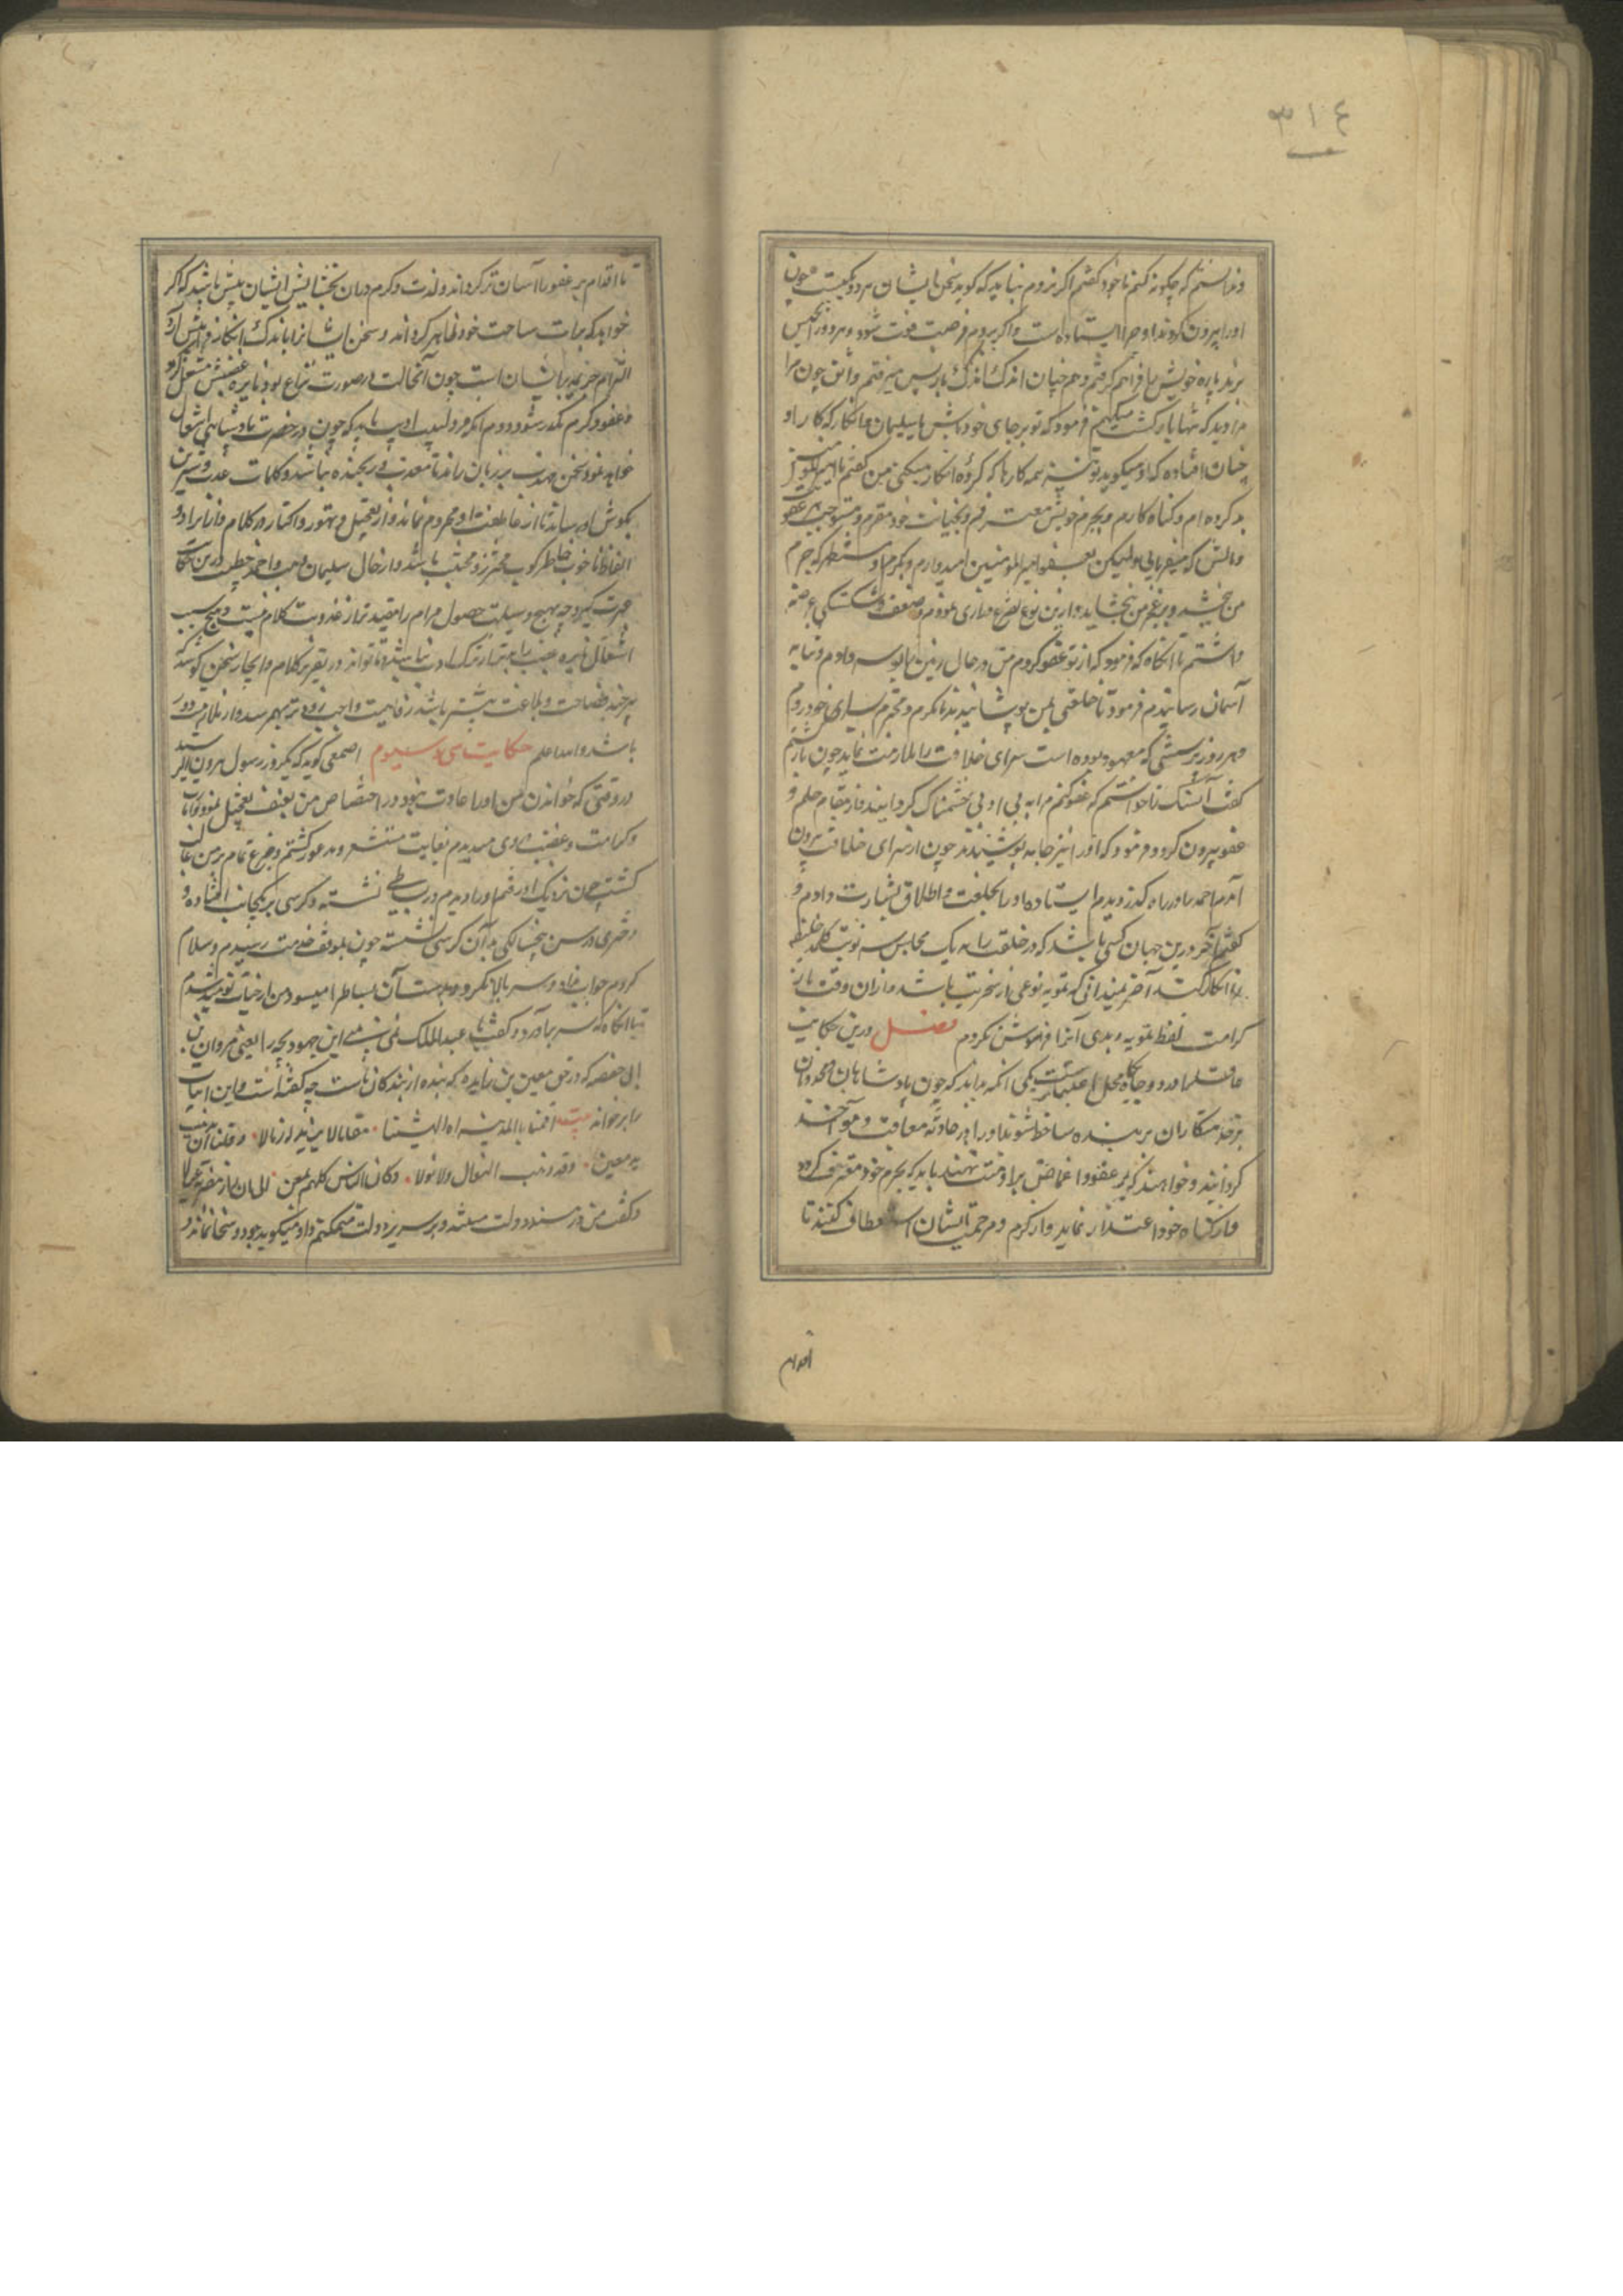 ٣١٤
و ندانستم که چگونه کنم با خود گفتم اگر نروم نباید که گوید سخن با ایشان هر دو یکیست چون
او را بیرون کردند او چرا ایستاده است و اگر بروم فرصت فوت شود و هر دو را بحبس
برند پاره خویش را فراهم گرفتم و هم چنان اندک اندک باز پس میرفتم واثق چون مرا
بدید که تنها باز گشت میکنم فرمود که تو بر جای خود باش با سلیمان ما انکار که کار او
چنان افتاده که او میگوید تو نیز همه کارها که کرده انکار میکنی من گفتم یا امیر المومنین
بد کرده ام و گناه کارم و بجرم خویش معترفم و بخیانت خود مقرم و مستوجب هر عقوبت
و مالش که میفرمایی ولیکن بعفو امیر المومنین امیدوارم و بکرم او مستظهر که جرم
من بخشد و بر عجز من بخشاید و ازین نوع تضرع و زاری نمودم و ضعف و شکستگی عرضه
داشتم تا آنگاه که فرمود که از تو عفو کردم من در حال زمین را بوسه دادم و پایه
آسمان رسانیدم فرمود تا خلعتی بمن پوشانیدند با تکرم و محترم بسرای خود روم
و هر روز بر رسمی که معهود بوده است سرای خلافت را ملازمت نماید چون بازگشتم
گفت آن سگ تا خواستم که عفو کنم مرا به بی ادبی خشمناک گردانید و از مقام حلم و
عفو بیرون کرد و فرمود که او را نیز جامه پوشیدند چون از سرای خلافت بیرون
آمدم احمد را در راه گذر دیدم ایستاده او را بخلعت و اطلاق بشارت دادم و
گفتم آخر درین جهان کسی باشد که در خلقت را به یک مجلس سه نوبت کلمه خلیفه
را انکار کند آخر نمیدانی که تمویه نوعی از سخریت باشد و از آن وقت باز
کرامت لفظ تمویه و بدی آنرا فراموش نکردم فصل درین حکایت
عاقل را در دو جایگاه محل اعتبارست یکی آنکه بداند که چون پادشاهان و مخدومان
بر خدمتکاران بر بنده ساخط شوند و او را در حادثه معاقب و مواخذ
گردانند و خواهند که بر عفو و اغماض بر او منت نهند باید که بجرم خود معترف گردد
و از گناه خود اعتذار نماید و از کرم و مرحمت ایشان استعطاف کند تا
اقدام
تا اقدام بر عفو را آسان تر گرداند و لذت و کرم در آن بخشایش ایشان بیش باشد که اگر
خواهد که برات ساحت خود ظاهر گرداند و سخن ایشان را باندک انکار فرا پیش آرد
التزام جریمه بر ایشان است چون آنحالت در صورت نزاع بود نایره غضبش مشتعل گردد
و عفو و کرم مکدر شود و دوم آنکه مرد لبیب ادیب باید که چون در حضرت پادشاهی اشتغال
خواهد نمود سخن مهذب بر زبان راند تا معدن و رنجنده نباشد و کلمات عذب و شیرین
بگوش او رساند تا از عاطفت او محروم نماند و از تعجیل و تهور و اکثار در کلام و از ایراد
الفاظ ناخوب خاطر کوب محترز و مجتنب باشد و از حال سلیمان وهب و احمد خصیب درین حکایت
عبرت گیرد چه هیچ وسیلت حصول مرام را مفیدتر از عذوبت کلام نیست و هیچ سبب
اشتعال نایره غضب را بدتر از ترک ادب نباشد تا تواند در تقریر کلام و ایجاز سخن کوشد
هر چند فصاحت و بلاغت بیشتر باشد رفاهیت و اجابت زودتر بهم رسد و از ملامت دور
باشد والله اعلم حکایت سی و سیوم اصمعی گوید که یکروز رسول هرون الرشید
در وقتی که خواندن من او را عادت نبود در احضار من بعنف تعجیل نمود و آثار
و کرامت و غضب در وی میدیدم بغایت مستشعر و مذعور گشتم و فزع تمام بر من غالب
گشت چون نزدیک او رفتم او را دیدم در بساطی نشسته و کرسی بر یکجانب افتاده و
دختری در سن پنج سالگی بر آن کرسی نشسته چون بموقف خدمت رسیدم و سلام
کردم جواب نداد و سر بالا نکرد و بدست آن بساط را میسود من از حیات نومید شدم
تا آنگاه که سر برآورد و گفت یا عبد الملک نمی بینی این جهود بچه را یعنی مروان بن
ابی حفصه که در حق معن بن زایده که بنده از بندگان ماست چه گفته است و این ابیات
را بر خواند بیت اقمنا بالمدینة اذ الیسنا · مقاما لا نرید به زوالا · و قلنا این نذهب
بعد معن · و قد ذهب النوال و لا نوالا · و کان الناس کلهم لمعن · الی ان زار حفرته عیالا
و گفت من در مسند دولت مسند و بر سریر دولت متمکنم و او میگوید جود و سخا نماند و